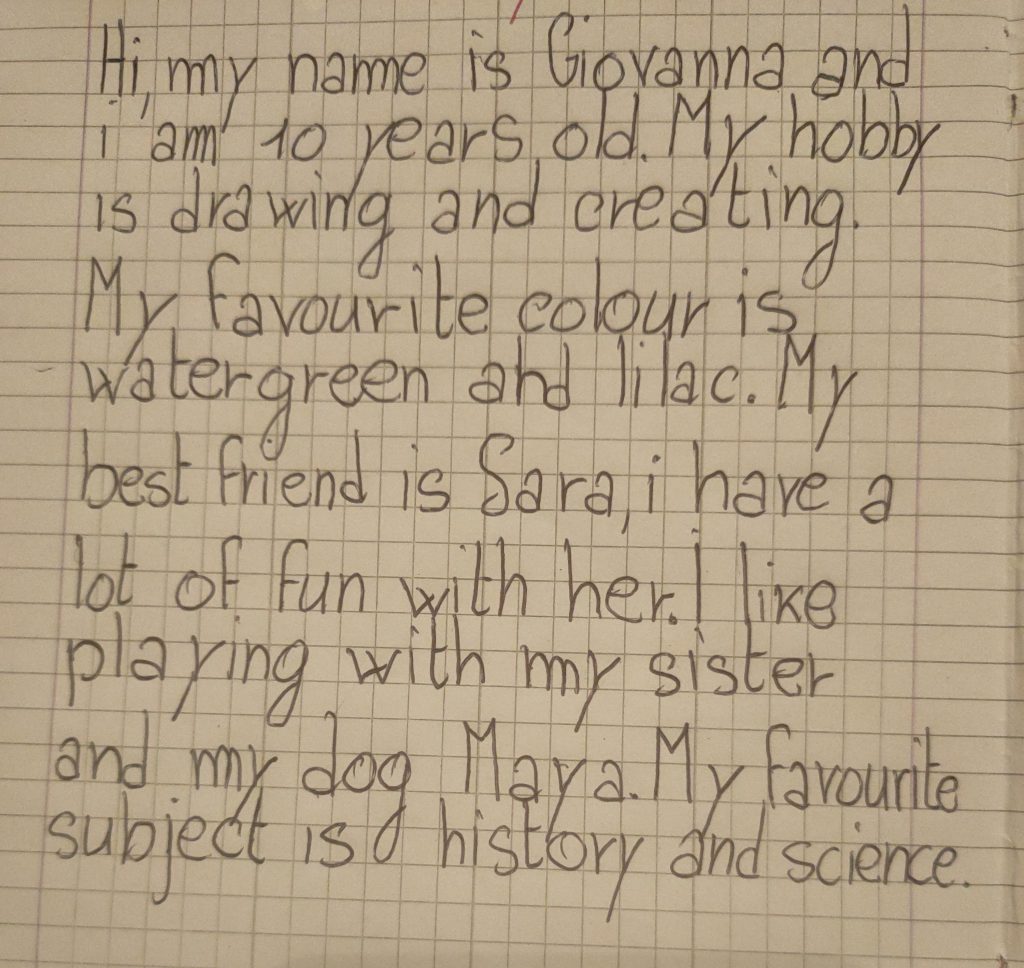 Hi, my name is Giovanna and
i am 10 years old. My hobby
is drawing and creating.
My favourite colour is
watergreen and lilac. My
best friend is Sara, i have a
lot of fun with her. I like
playing with my sister
and my dog Maya. My favourite
subject is history and science.